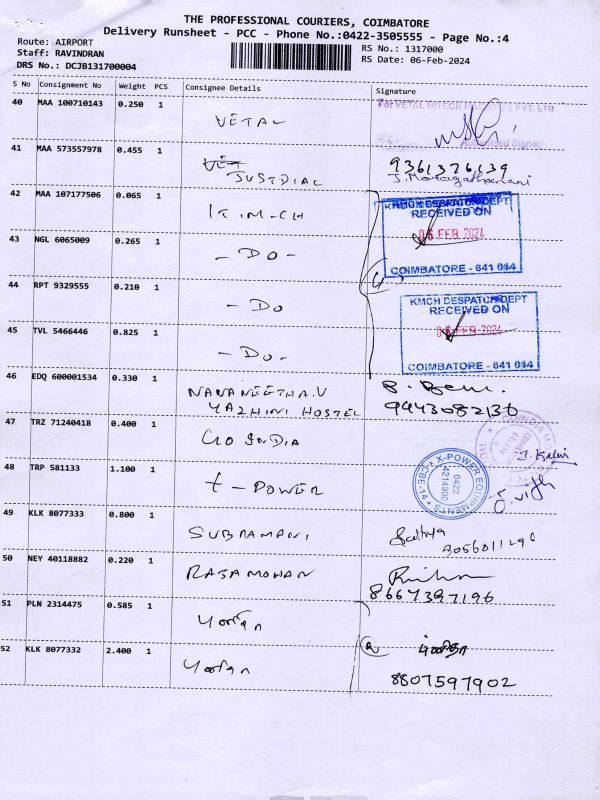 THE PROFESSIONAL COURIERS, COIMBATORE
Delivery Runsheet - PCC - Phone No.:0422-3505555 - Page No.:4
Route: AIRPORT
Staff: RAVINDRAN
DRS No.: DCJB131700004
RS No.: 1317000
RS Date: 06-Feb-2024
S No Consignment No Weight PCS Consignee Details Signature
40 MAA 100710143 0.250 1 VETAL
41 MAA 573557978 0.455 1 JUSTDIAL 9361326139
42 MAA 107177506 0.065 1
KMCH DESPATCH DEPT
RECEIVED ON
06 FEB 2024
COIMBATORE - 641 014
43 NGL 6065009 0.265 1 - DO -
44 RPT 9329555 0.210 1 - DO
KMCH DESPATCH DEPT
RECEIVED ON
06 FEB 2024
COIMBATORE - 641 014
45 TVL 5466446 0.825 1 - DO -
46 EDQ 600001534 0.330 1 NAVANEETHA.V
YAZHINI HOSTEL 9943082130
47 TRZ 71240418 0.400 1 INDIA J. Kalvi
48 TRP 581133 1.100 1 X-POWER
X-POWER EQUIPMENTS
0422
4214900
CBE-14
49 KLK 8077333 0.800 1 SUBRAMANI Sathya
50 NEY 40118882 0.220 1 RAJAMOHAN
8667397196
51 PLN 2314475 0.585 1
52 KLK 8077332 2.400 1
8807597902